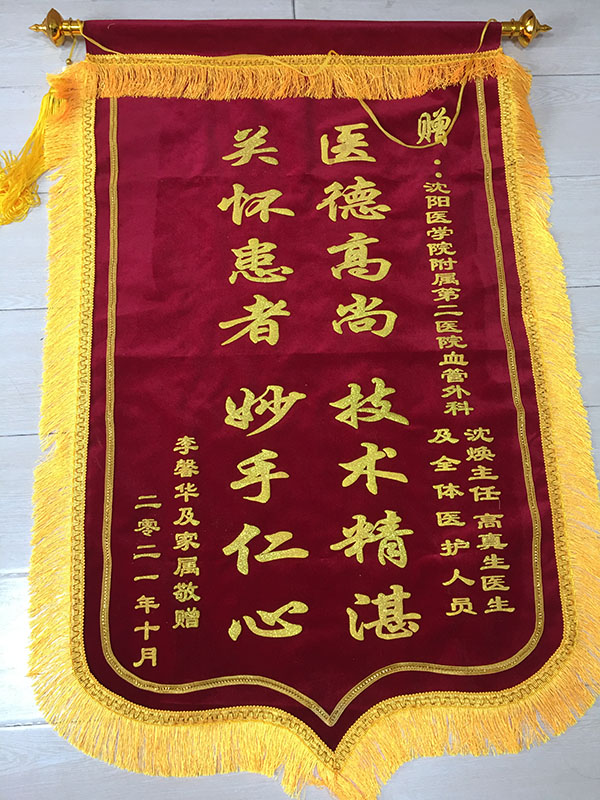 赠：沈阳医学院附属第二医院血管外科
沈焕主任 高真生医生
及全体医护人员
医德高尚 技术精湛
关怀患者 妙手仁心
李馨华及家属敬赠
二零二一年十月